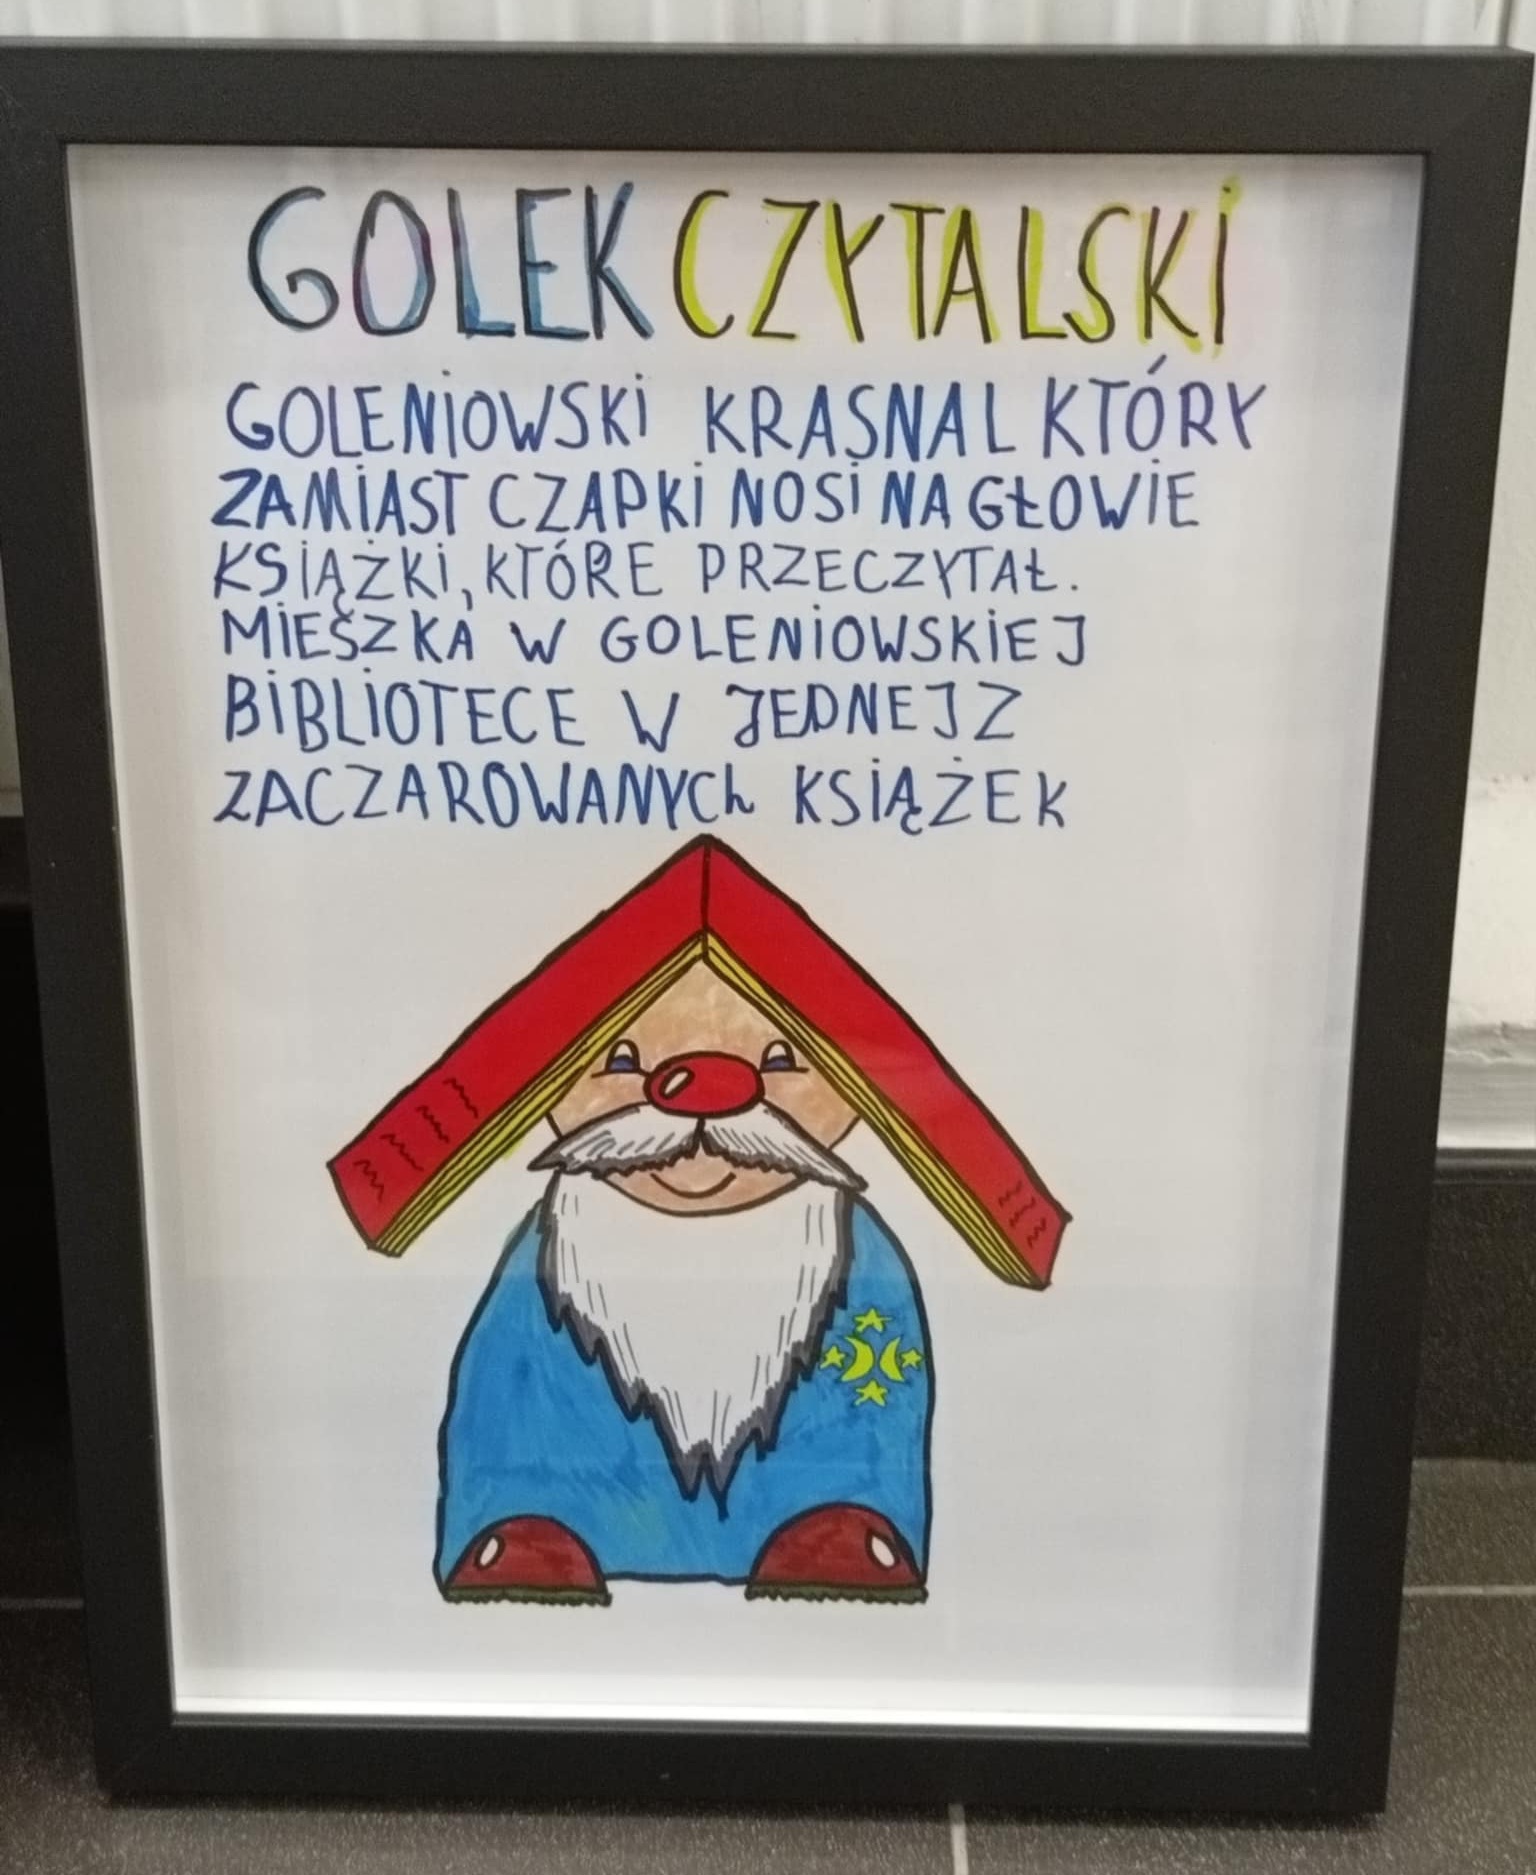 GOLEK CZYTALSKI
GOLENIOWSKI KRASNAL KTÓRY
ZAMIAST CZAPKI NOSI NA GŁOWIE
KSIĄŻKI, KTÓRE PRZECZYTAŁ.
MIESZKA W GOLENIOWSKIEJ
BIBLIOTECE W JEDNEJ Z
ZACZAROWANYCh KSIĄŻEK